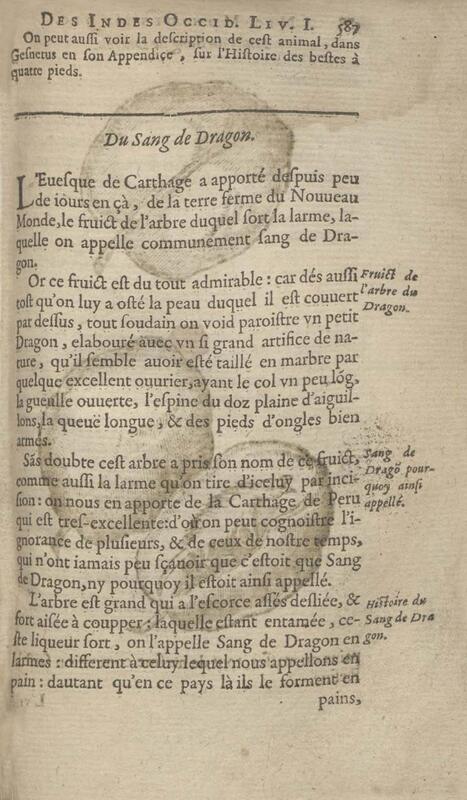 DES INDES OCCID. LIV. I. 587
On peut aussi voir la description de cest animal, dans
Gesnerus en son Appendice, sur l'Histoire des bestes à
quatre pieds.
Du Sang de Dragon.
L'Euesque de Carthage a apporté despuis peu
de iours en çà, de la terre ferme du Nouueau
Monde, le fruict de l'arbre duquel sort la larme, la-
quelle on appelle communement sang de Dra-
gon.
Or ce fruict est du tout admirable : car dés aussi
tost qu'on luy a osté la peau duquel il est couuert
par dessus, tout soudain on void paroistre vn petit
Dragon, elabouré auec vn si grand artifice de na-
ture, qu'il semble auoir esté taillé en marbre par
quelque excellent ouurier, ayant le col vn peu lóg,
la gueulle ouuerte, l'espine du doz plaine d'aiguil-
lons, la queuë longue, & des pieds d'ongles bien
armés.
Fruict de
l'arbre du
Dragon.
Sãs doubte cest arbre a pris son nom de ce fruict,
comme aussi la larme qu'on tire d'iceluy par inci-
sion : on nous en apporte de la Carthage de Peru
qui est tres-excellente: d'où on peut cognoistre l'i-
gnorance de plusieurs, & de ceux de nostre temps,
qui n'ont iamais peu sçauoir que c'estoit que Sang
de Dragon, ny pourquoy il estoit ainsi appellé.
Sang de
Dragõ pour-
quoy ainsi
appellé.
L'arbre est grand qui a l'escorce assés desliée, &
fort aisée à coupper : laquelle estant entamée, ce-
ste liqueur sort, on l'appelle Sang de Dragon en
larmes : different à celuy lequel nous appellons en
pain : dautant qu'en ce pays là ils le forment en
Histoire du
Sang de Dra
gon.
pains,